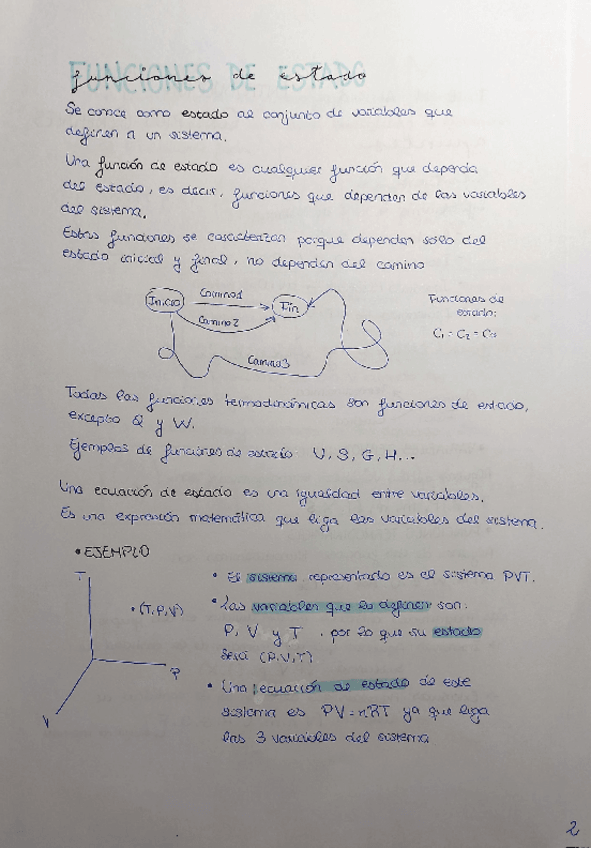 FUNCIONES DE ESTADO
funciones de estado
Se conoce como estado al conjunto de variables que
definen a un sistema.
Una función de estado es cualquier función que dependa
del estado, es decir, funciones que dependen de las variables
del sistema.
Estas funciones se caracterizan porque dependen sólo del
estado inicial y final, no dependen del camino
Inicio
Camino1
Camino2
Camino3
Fin
Funciones de
estado:
C₁ = C₂ = C₃
Todas las funciones termodinámicas son funciones de estado,
excepto Q y W.
Ejemplos de funciones de estado: U, S, G, H...
Una ecuación de estado es una igualdad entre variables.
Es una expresión matemática que liga las variables del sistema.
• EJEMPLO
T
• (T, P, V)
P
V
• El sistema representado es el sistema PVT.
• Las variables que lo definen son:
P, V y T, por lo que su estado
será (P, V, T)
• Una ecuación de estado de este
sistema es PV = nRT ya que liga
las 3 variables del sistema
2